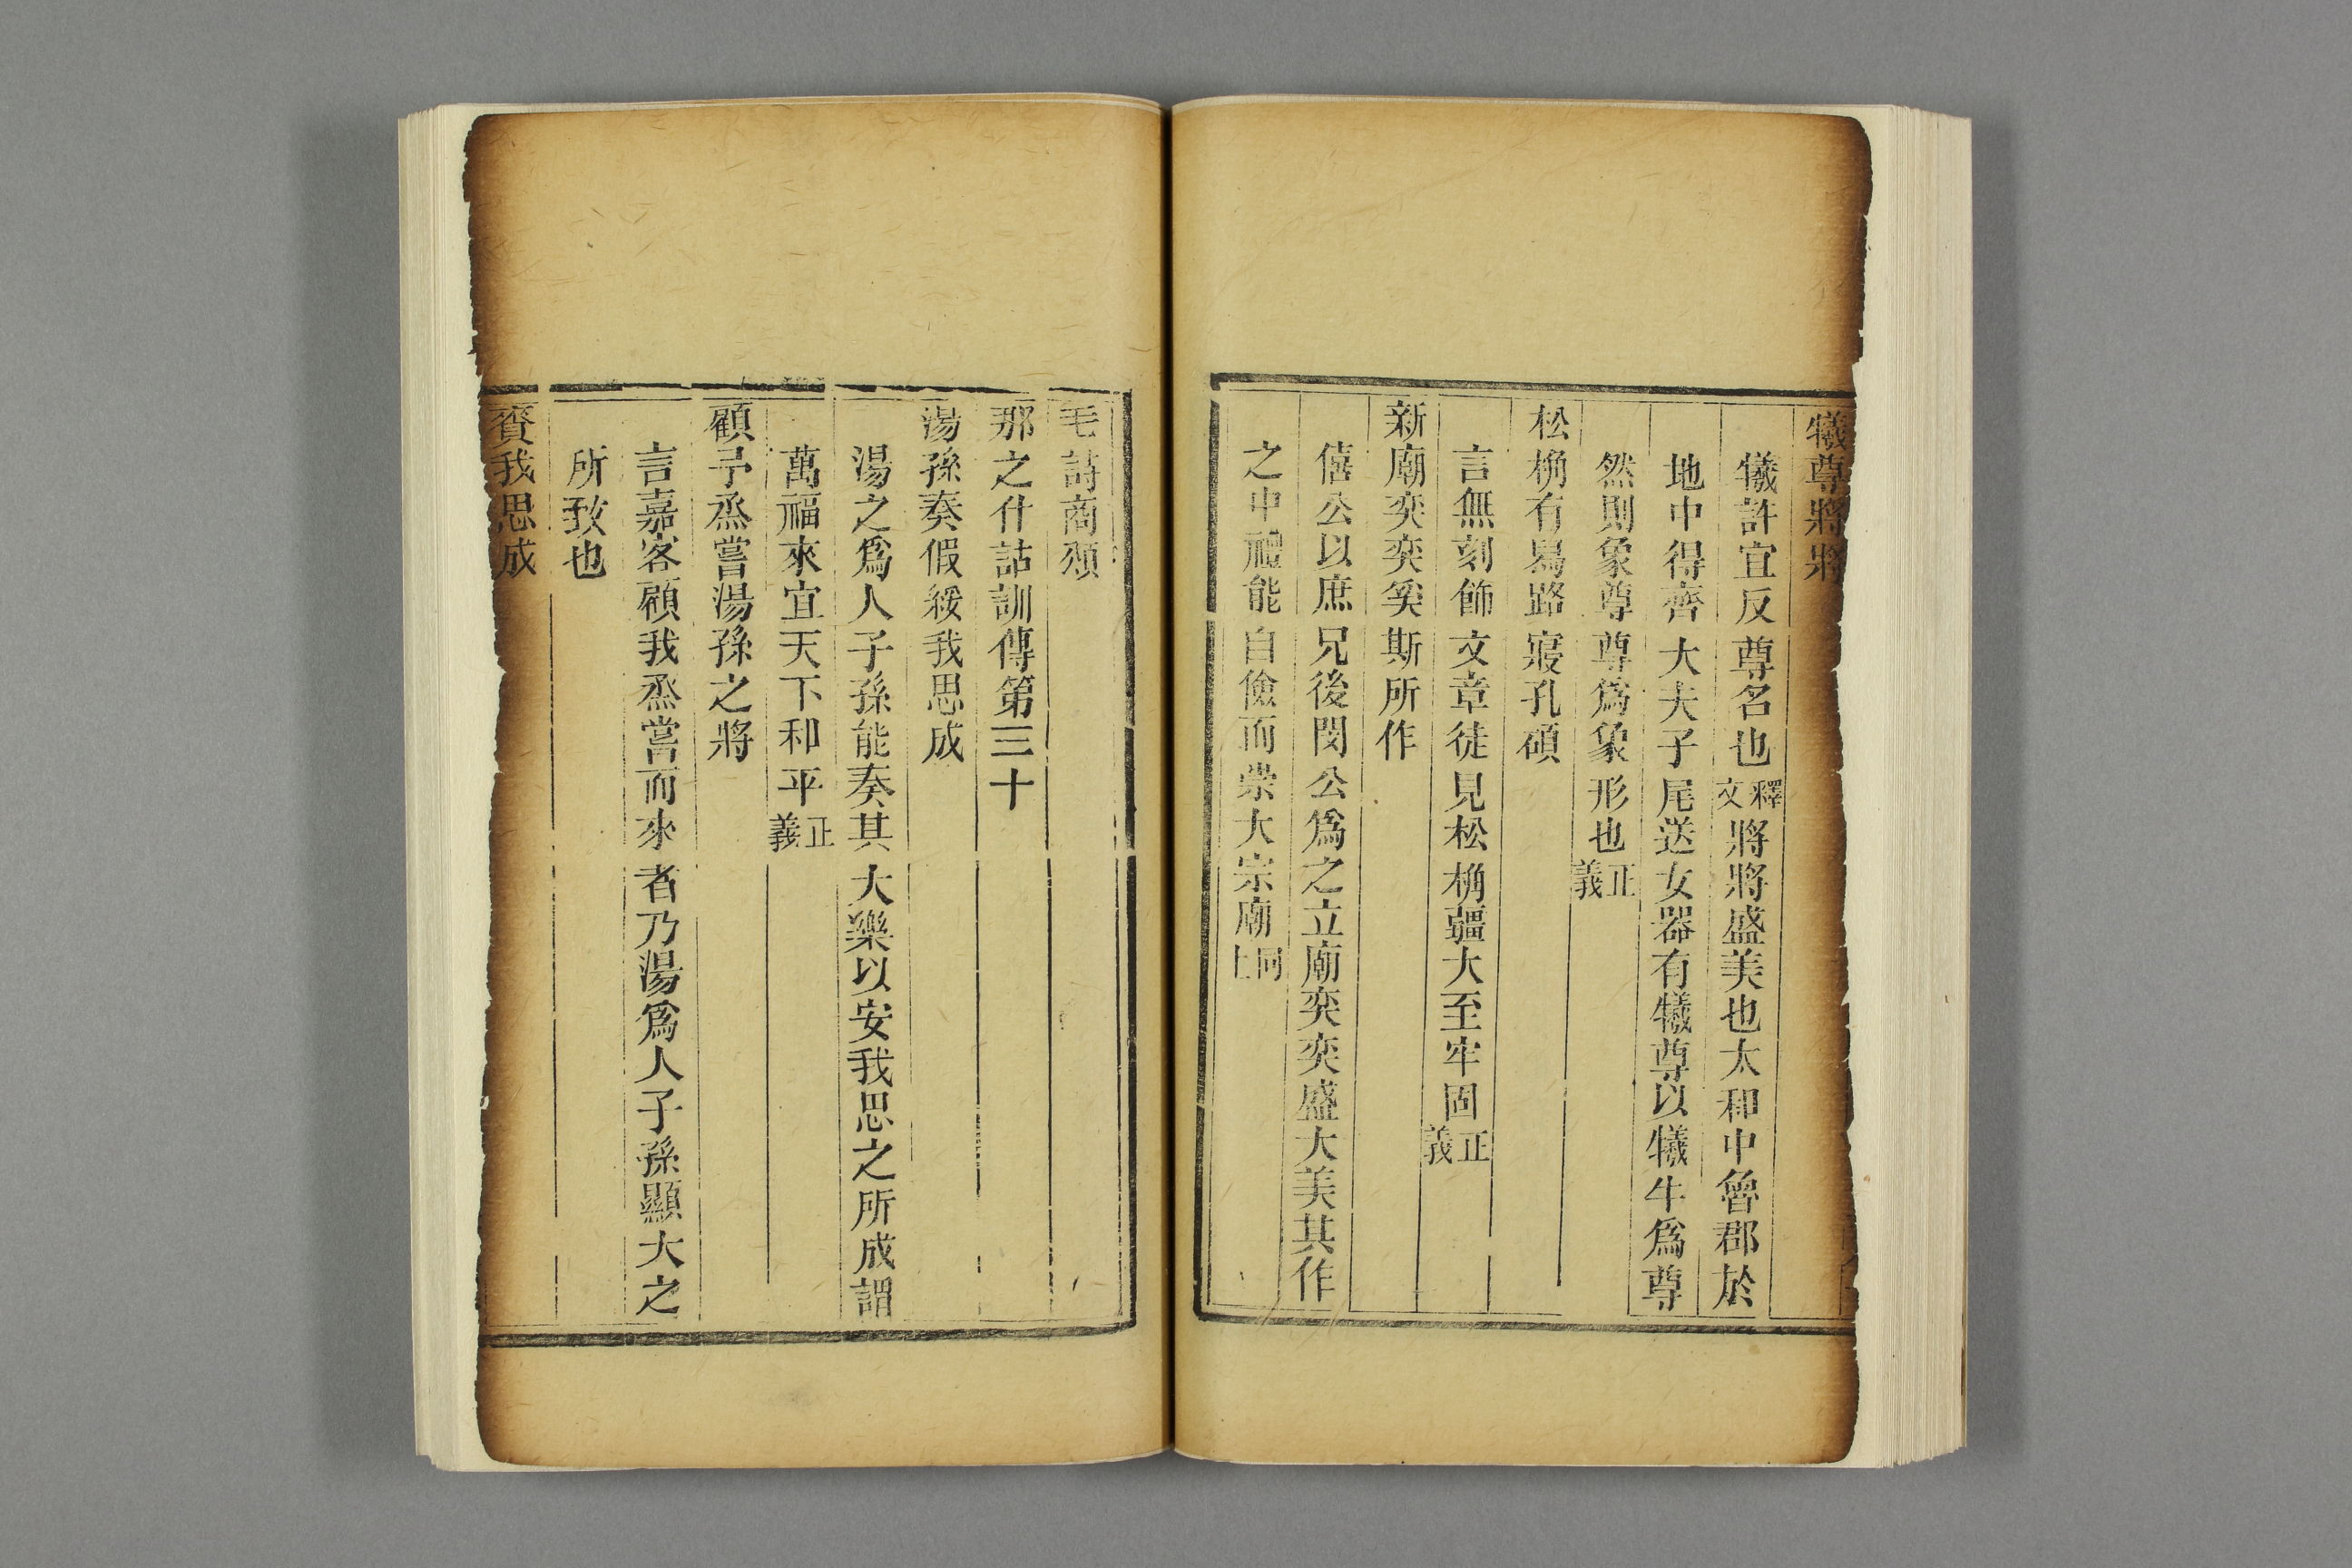 犧尊將將
犧許宜反尊名也釋文將將盛美也太和中魯郡於
地中得齊大夫子尾送女器有犧尊以犧牛爲尊
然則象尊尊爲象形也正義
松桷有舄路寢孔碩
言無刻飾文章徒見松桷彊大至牢固正義
新廟奕奕奚斯所作
僖公以庶兄後閔公爲之立廟奕奕盛大美其作
之中禮能自儉而崇大宗廟同上
毛詩商頌
那之什詁訓傳第三十
湯孫奏假綏我思成
湯之爲人子孫能奏其大樂以安我思之所成謂
萬福來宜天下和平正義
顧予烝嘗湯孫之將
言嘉客顧我烝嘗而來者乃湯爲人子孫顯大之
所致也
賚我思成